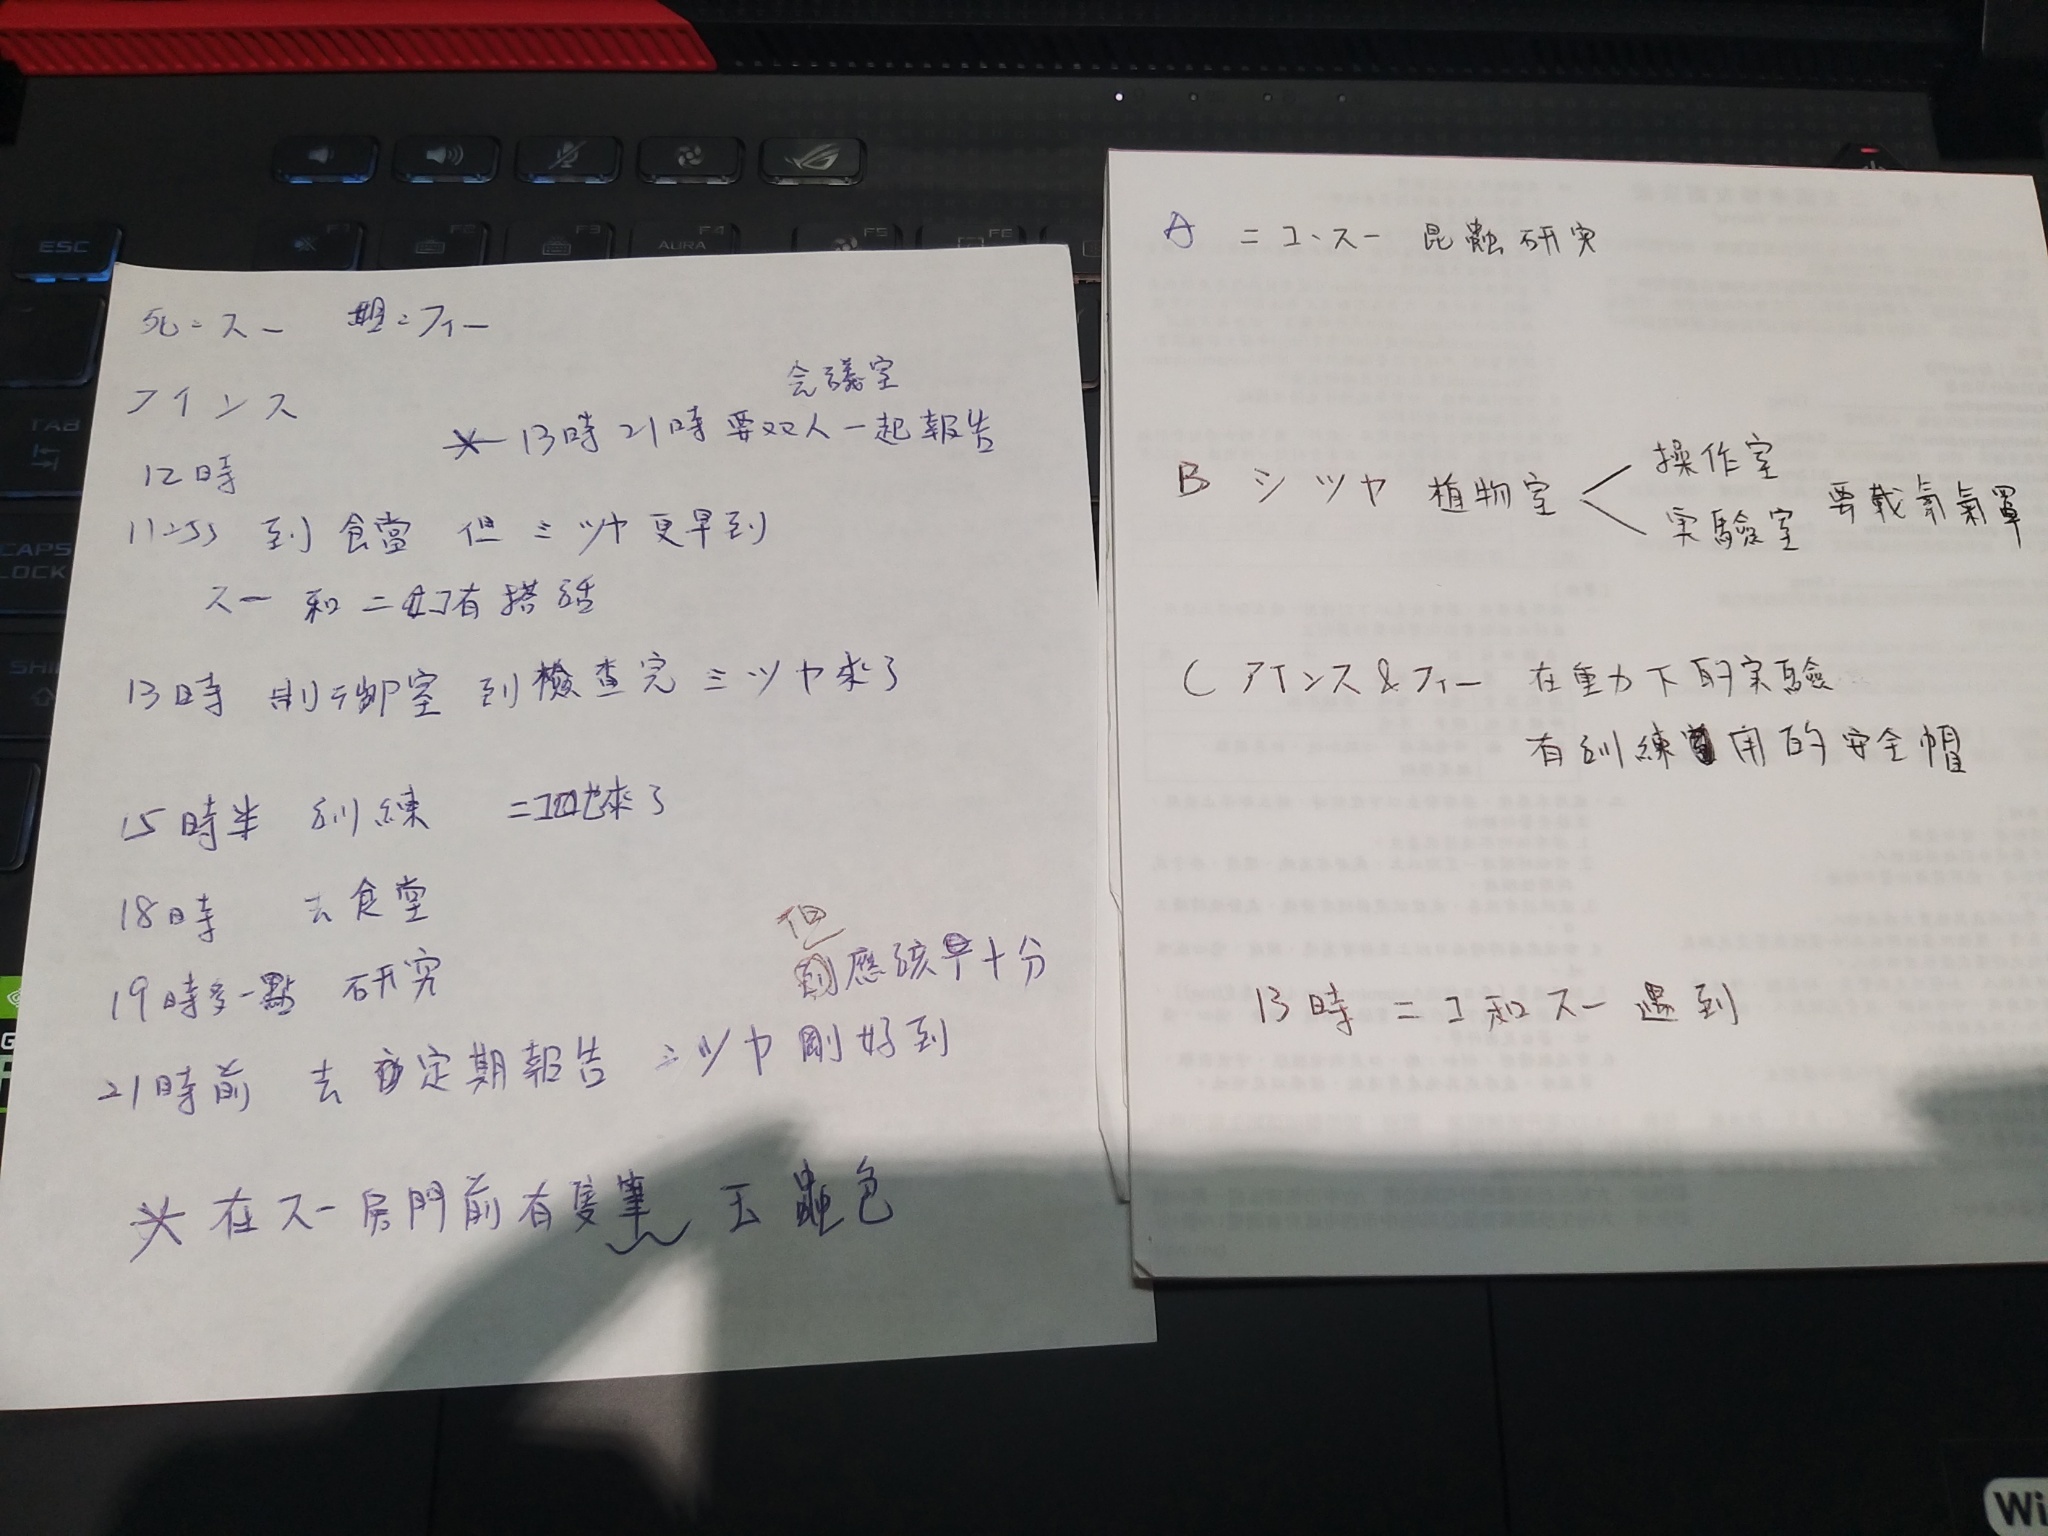 死=スー 理=フィー
アインス
会議室
※ 13時 21時 要双人一起報告
12時
11:55 到食當 但ミツヤ更早到
スー和ニコ有搭話
13時 制御室 到檢查完 ミツヤ來了
15時半 訓練 ニコ也來了
18時 去食堂
19時多一點 研究
但
應該早十分
21時前 去定期報告 ミツヤ剛好到
※ 在スー房門前有隻筆 玉蟲色
A ニコ、スー 昆蟲研究
B シツヤ 植物室
操作室
実驗室
要載氧氣罩
C アインス&フィー 在重力下的実驗
有訓練用的安全帽
13時 ニコ和スー遇到
ESC
TAB
CAPS LOCK
SHI
F1
F2
F3
F4
AURA
F5
F6
Wi